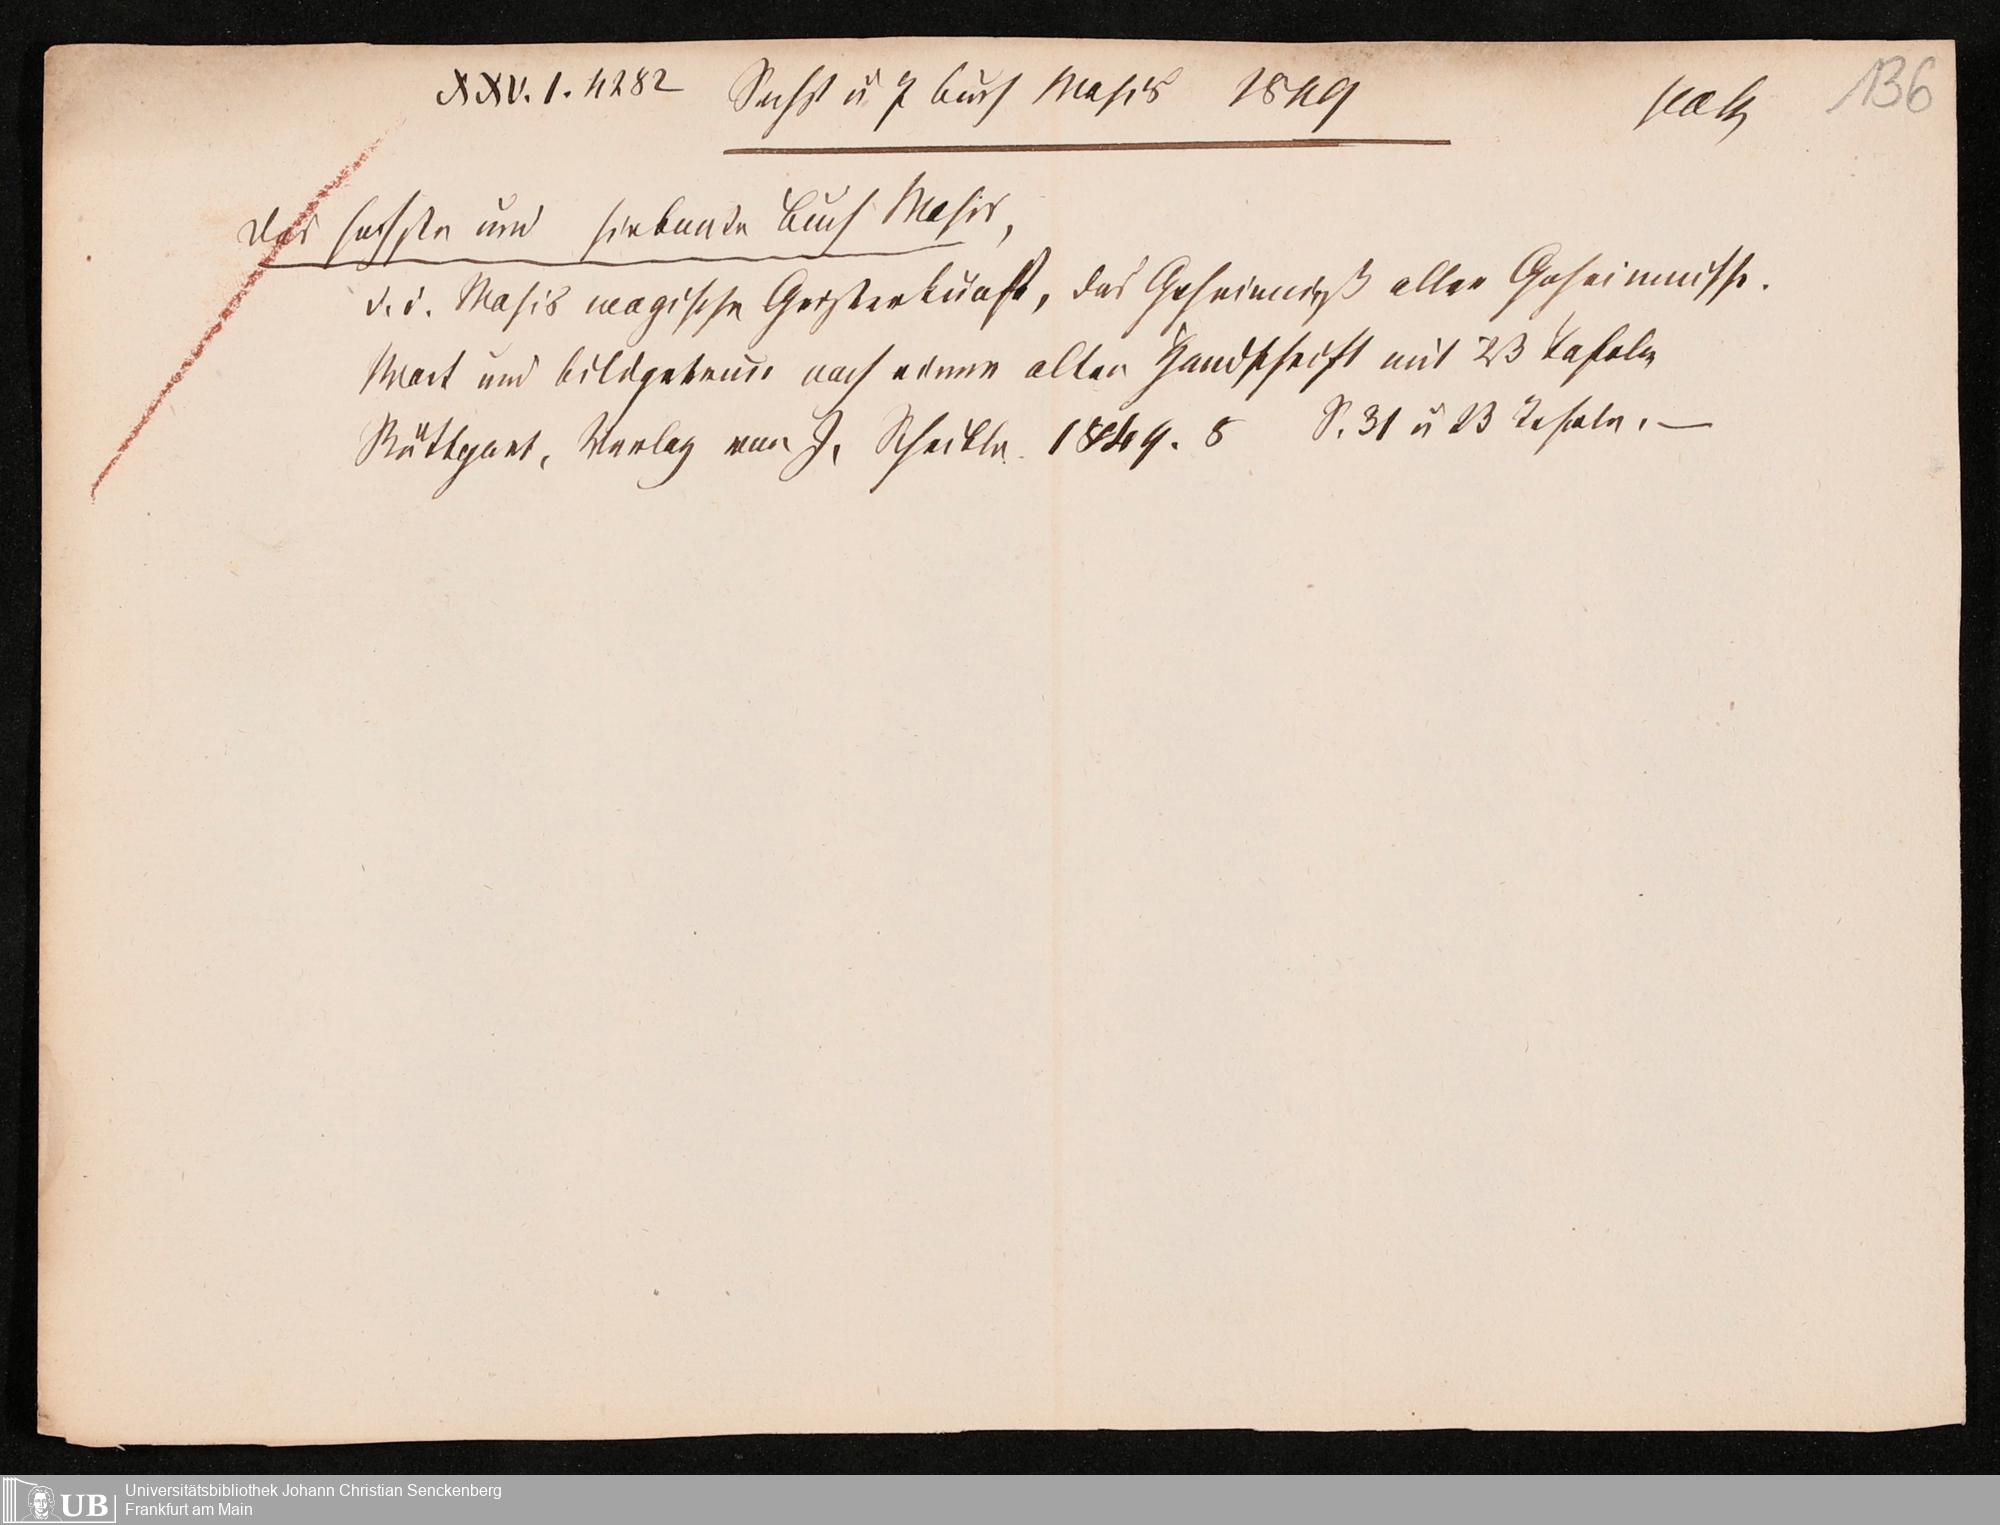 XXV. 1. 4282 Sechst u 7 Buch Mosis 1849 136
Das sechste und siebente Buch Mosis,
d. i. Mosis magische Geisterkunst, das Geheimniß aller Geheimnisse.
Wort und bildgetreu nach einer alten Handschrift mit 23 Tafeln
Stuttgart, Verlag von J. Scheible 1849. 8 S. 31 u 23 Tafeln. —
UB Universitätsbibliothek Johann Christian Senckenberg
Frankfurt am Main